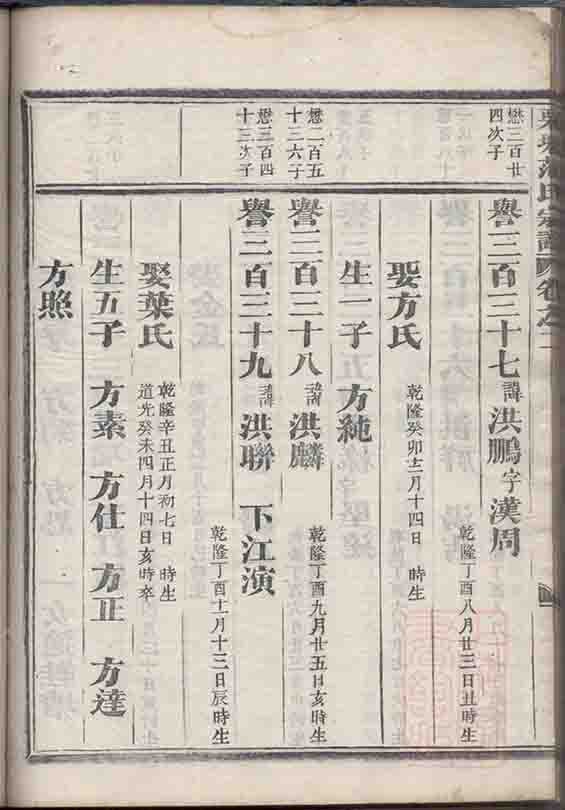 氏宗譜 卷之二
懋三百廿
四次子
譽三百三十七 諱 洪鵬 字 漢周
乾隆丁酉八月廿三日丑時生
娶方氏
乾隆癸卯十二月十四日 時生
生一子 方純
懋二百五
十三六子
譽三百三十八 諱 洪麟
乾隆丁酉九月廿五日亥時生
懋三百四
十三次子
譽三百三十九 諱 洪聯 下江演
乾隆丁酉十一月十三日辰時生
娶葉氏
乾隆辛丑正月初七日 時生
道光癸未四月十四日亥時卒
生五子 方素 方仕 方正 方達
方照